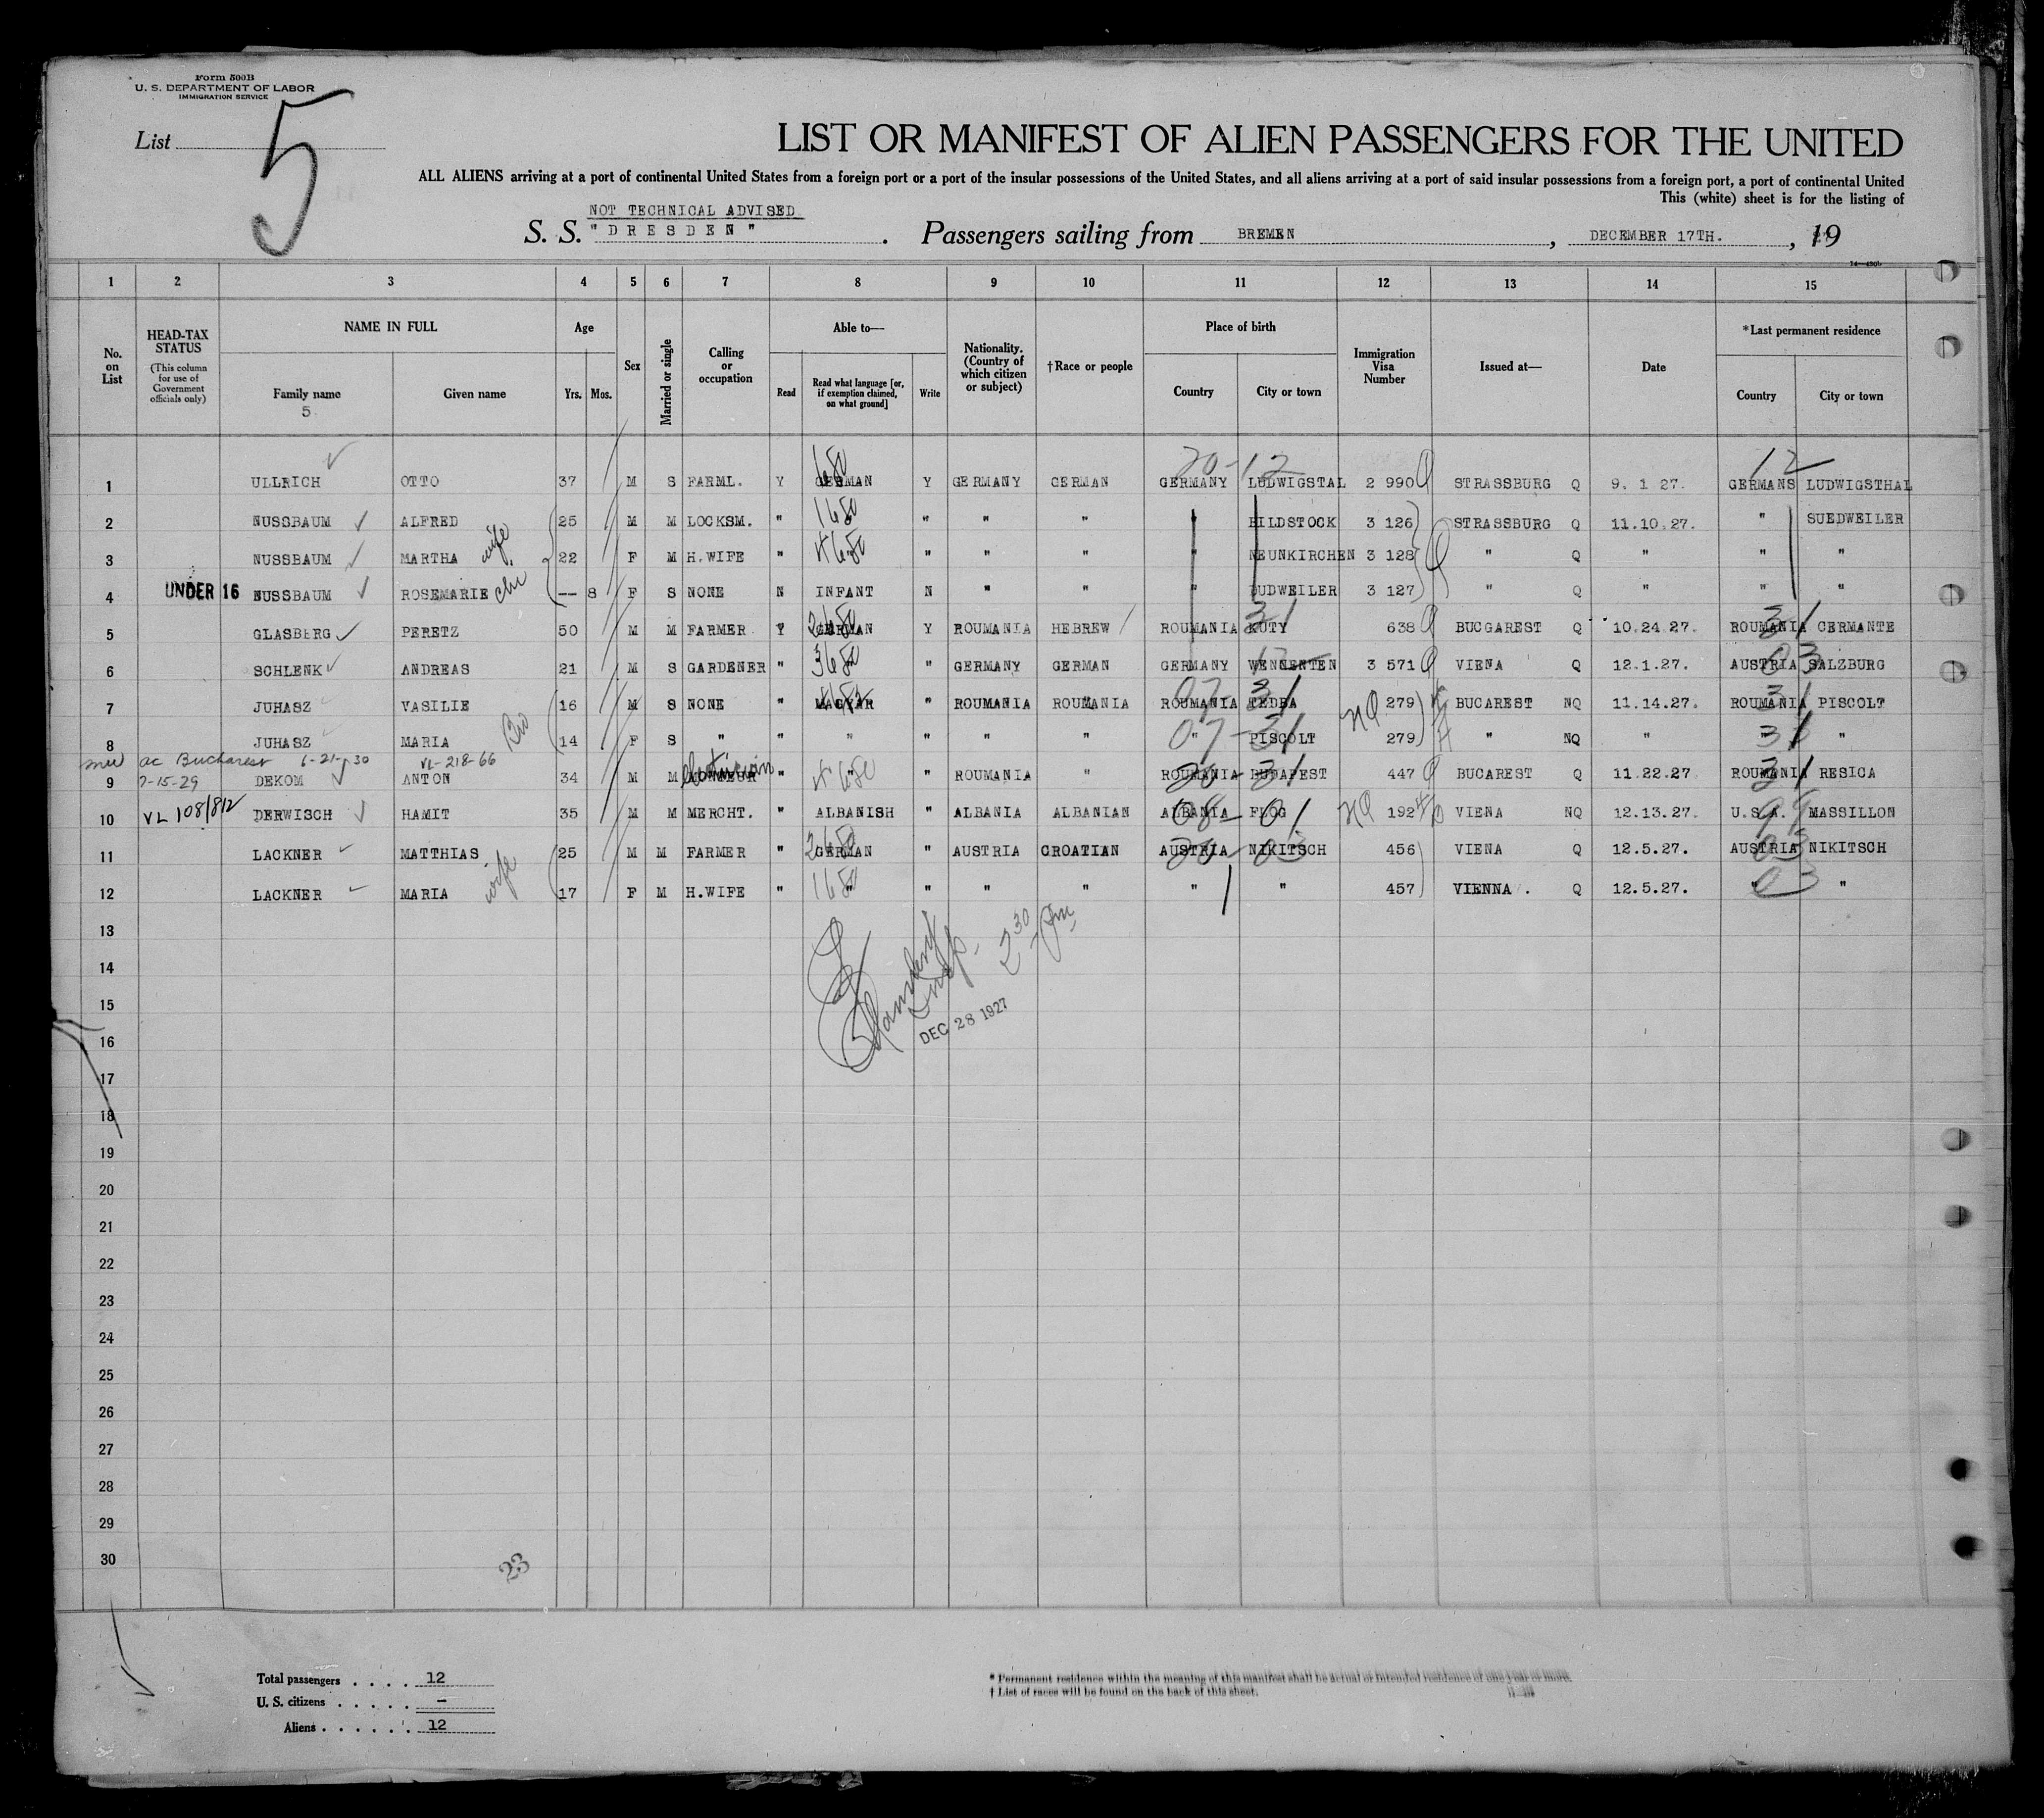 Form 500B
U. S. DEPARTMENT OF LABOR
IMMIGRATION SERVICE
List 5
LIST OR MANIFEST OF ALIEN PASSENGERS FOR THE UNITED
ALL ALIENS arriving at a port of continental United States from a foreign port or a port of the insular possessions of the United States, and all aliens arriving at a port of said insular possessions from a foreign port, a port of continental United
This (white) sheet is for the listing of
NOT TECHNICAL ADVISED
S. S. "DRESDEN". Passengers sailing from BREMEN, DECEMBER 17TH., 19
1 2 3 4 5 6 7 8 9 10 11 12 13 14 15
No. on List
HEAD-TAX STATUS
(This column for use of Government officials only)
NAME IN FULL
Family name
5
Given name
Age
Yrs. Mos.
Sex
Married or single
Calling or occupation
Able to—
Read
Read what language [or, if exemption claimed, on what ground]
Write
Nationality. (Country of which citizen or subject)
†Race or people
Place of birth
Country
City or town
Immigration Visa Number
Issued at—
Date
*Last permanent residence
Country
City or town
20-12 12
1 ULLRICH OTTO 37 M S FARML. Y GERMAN Y GERMANY GERMAN GERMANY LUDWIGSTAL 2 990 STRASSBURG Q 9. 1 27. GERMANS LUDWIGSTHAL
2 NUSSBAUM ALFRED 25 M M LOCKSM. " " " " HILDSTOCK 3 126 STRASSBURG Q 11.10.27. " SUEDWEILER
3 NUSSBAUM MARTHA wife 22 F M H.WIFE " " " " NEUNKIRCHEN 3 128 " Q " " "
4 UNDER 16 NUSSBAUM ROSEMARIE chi -- 8 F S NONE N INFANT N " " " DUDWEILER 3 127 " Q " " "
5 GLASBERG PERETZ 50 M M FARMER Y GERMAN Y ROUMANIA HEBREW ROUMANIA KUTY 638 BUCGAREST Q 10.24 27. ROUMANIA CERMANTE
6 SCHLENK ANDREAS 21 M S GARDENER " " GERMANY GERMAN GERMANY WENNENTEN 3 571 VIENA Q 12.1.27. AUSTRIA SALZBURG
7 JUHASZ VASILIE 16 M S NONE " MAGYAR " ROUMANIA ROUMANIA ROUMANIA 279 BUCAREST NQ 11.14.27. ROUMANIA PISCOLT
8 JUHASZ MARIA 14 F S " " " " " " " PISCOLT 279 " NQ " " "
ac Bucharest 6-21-30 VL-218-66
9 7-15-29 DEKOM ANTON 34 M M electrician " " " ROUMANIA " ROUMANIA BUDAPEST 447 BUCAREST Q 11.22.27 ROUMANIA RESICA
10 VL 108/812 DERWISCH HAMIT 35 M M MERCHT. " ALBANISH " ALBANIA ALBANIAN ALBANIA FLOG NQ 192 VIENA NQ 12.13.27. U.S.A. MASSILLON
11 LACKNER MATTHIAS. 25 M M FARMER " GERMAN " AUSTRIA CROATIAN AUSTRIA NIKITSCH 456 VIENA Q 12.5.27. AUSTRIA NIKITSCH
12 LACKNER MARIA wife 17 F M H.WIFE " " " " " " " 457 VIENNA . Q 12.5.27. " "
13
14
15
DEC 28 1927
16
17
18
19
20
21
22
23
24
25
26
27
28
29
30
23
Total passengers . . . . 12
U. S. citizens . . . . . –
Aliens . . . . . . 12
* Permanent residence within the meaning of this manifest shall be actual or intended residence of one year or more.
† List of races will be found on the back of this sheet.